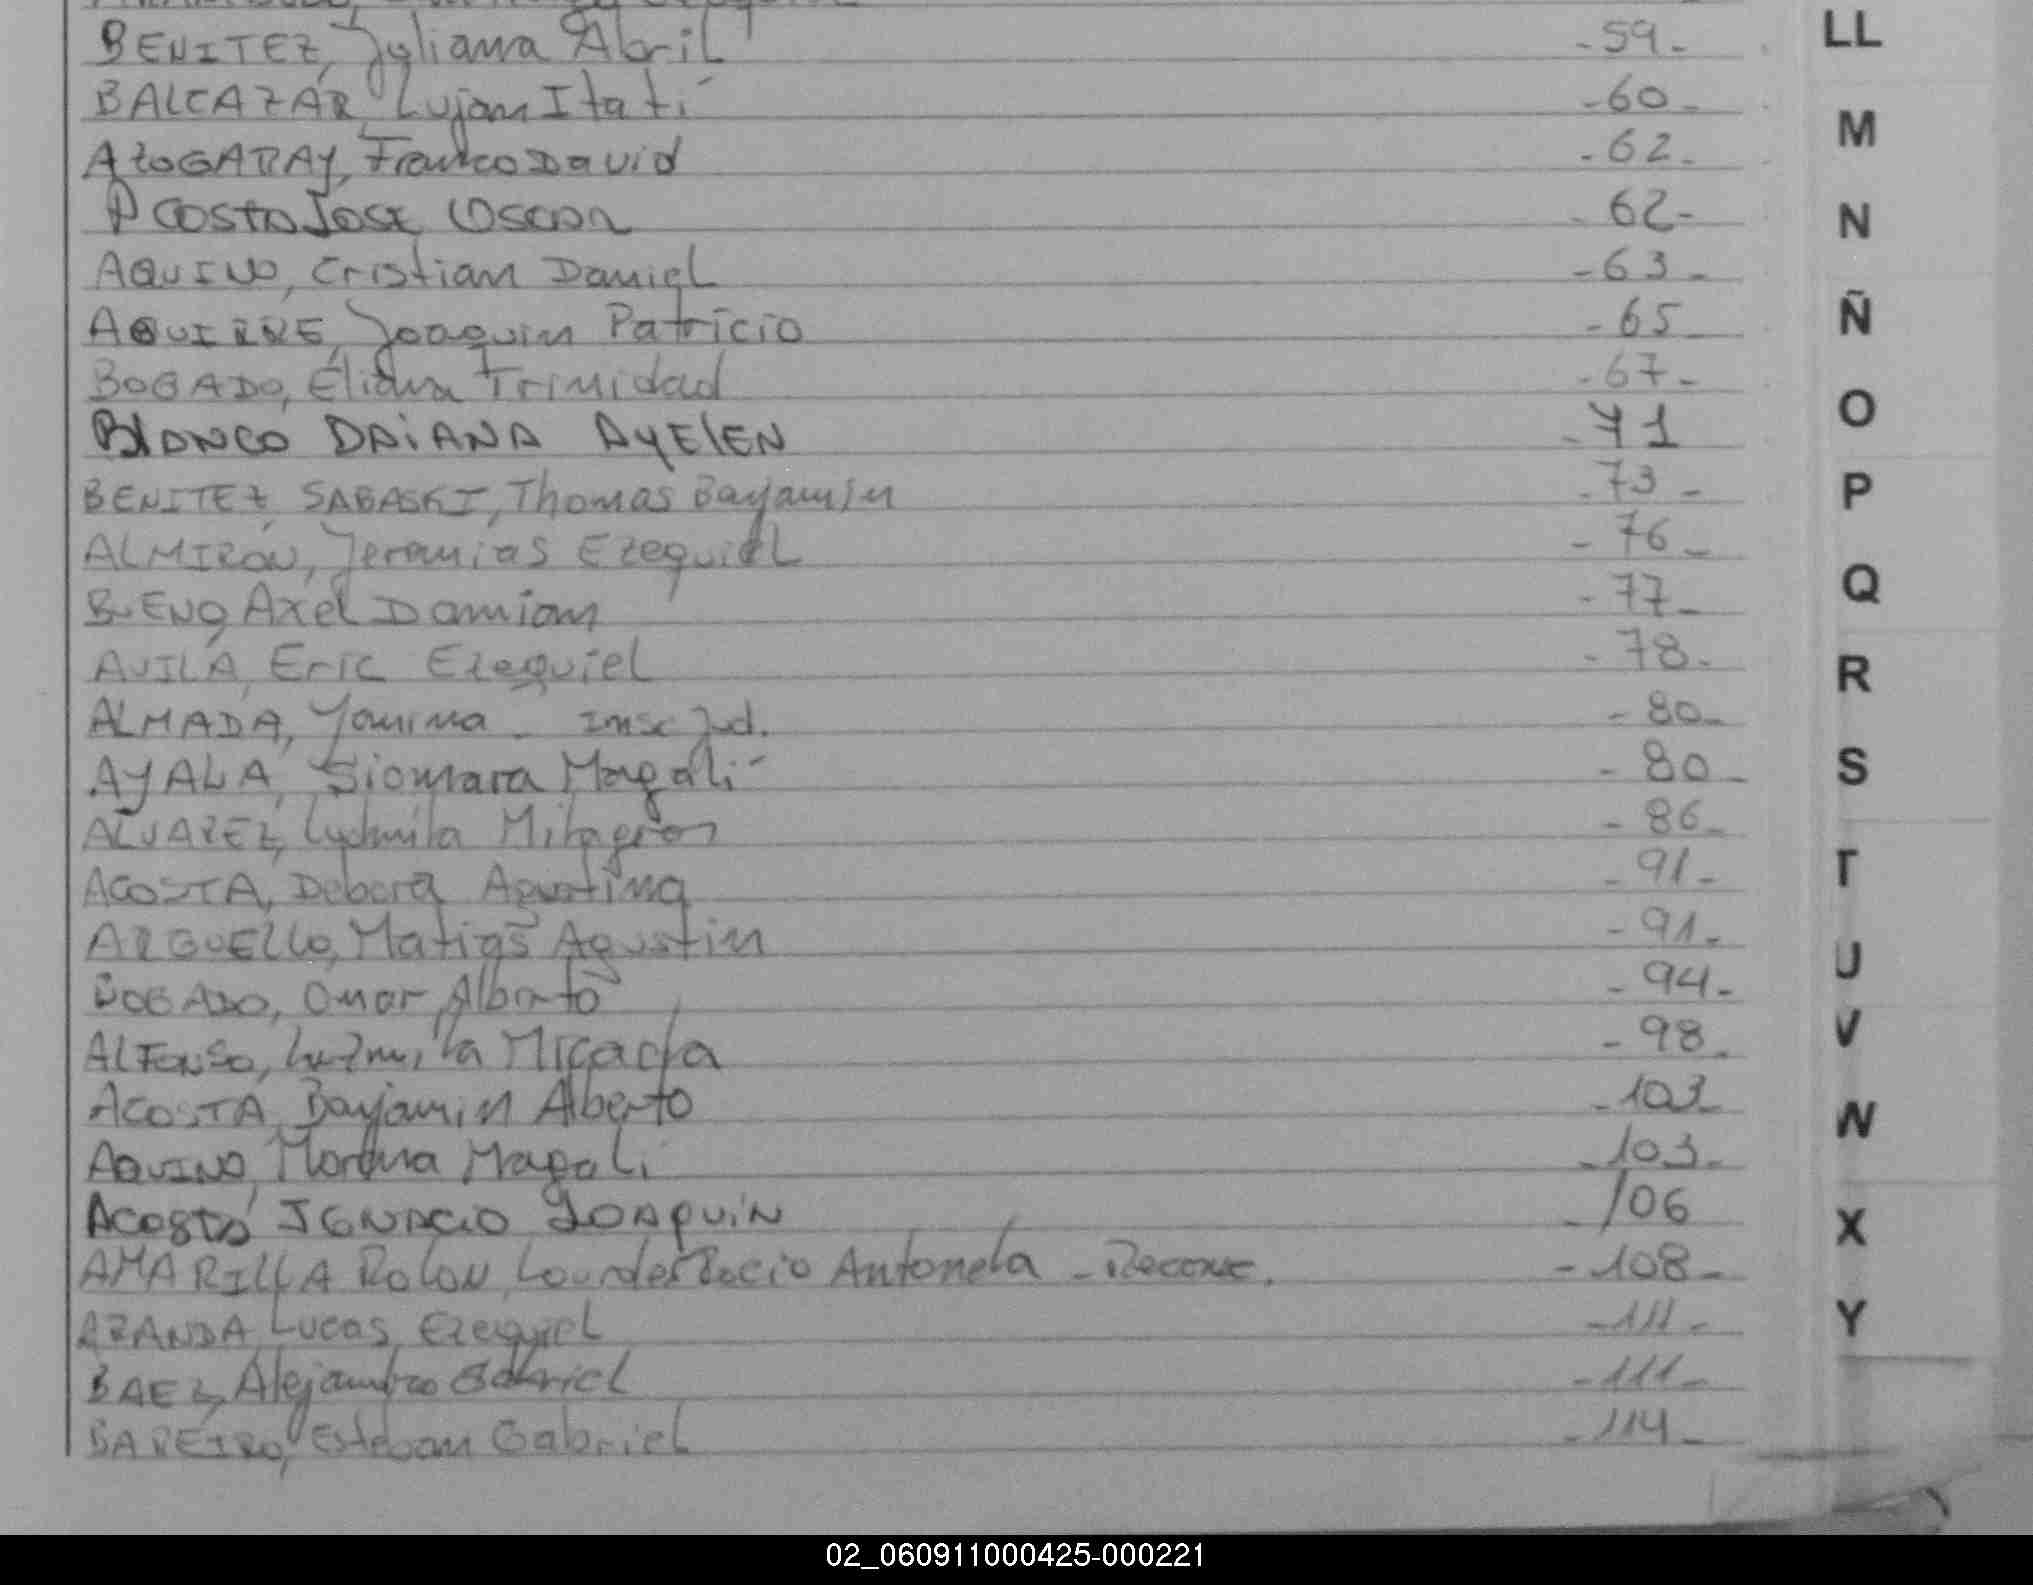 BENITEZ, Juliana Abril -59-
BALCAZAR, Lujan Itatí -60-
AZOGARAY, Franco David -62-
ACOSTA Jose Oscar -62-
AQUINO, Cristian Daniel -63-
AQUIRRE, Joaquin Patricio -65-
BOGADO, Eliana Trinidad -67-
BLANCO DAIANA AYELEN -71
BENITEZ SABASKI, Thomas Bayjamin -73-
ALMIRÓN, Jeremias Ezequiel -76-
BUENO, Axel Damian -77-
AVILA, Eric Ezequiel -78-
ALMADA, Yanina - Insc Jud. -80-
AYALA, Siomara Magalí -80-
ALVAREZ, Ludmila Milagros -86-
ACOSTA, Debora Agustina -91-
ARGUELLO, Matias Agustin -91-
BOGADO, Omar Alberto -94-
ALFONSO, Luzmila Micaela -98-
ACOSTA, Bayjamin Alberto -103-
AQUINO, Morena Magali -103-
ACOSTA IGNACIO JOAQUIN -106
AMARILLA ROLON, Lourdes Rocio Antonela - Reconc. -108-
ARANDA, Lucas Ezequiel -111-
BAEZ, Alejandro Gabriel -111-
BAREIRO, Esteban Gabriel -114-
LL
M
N
Ñ
O
P
Q
R
S
T
U
V
W
X
Y
02_060911000425-000221